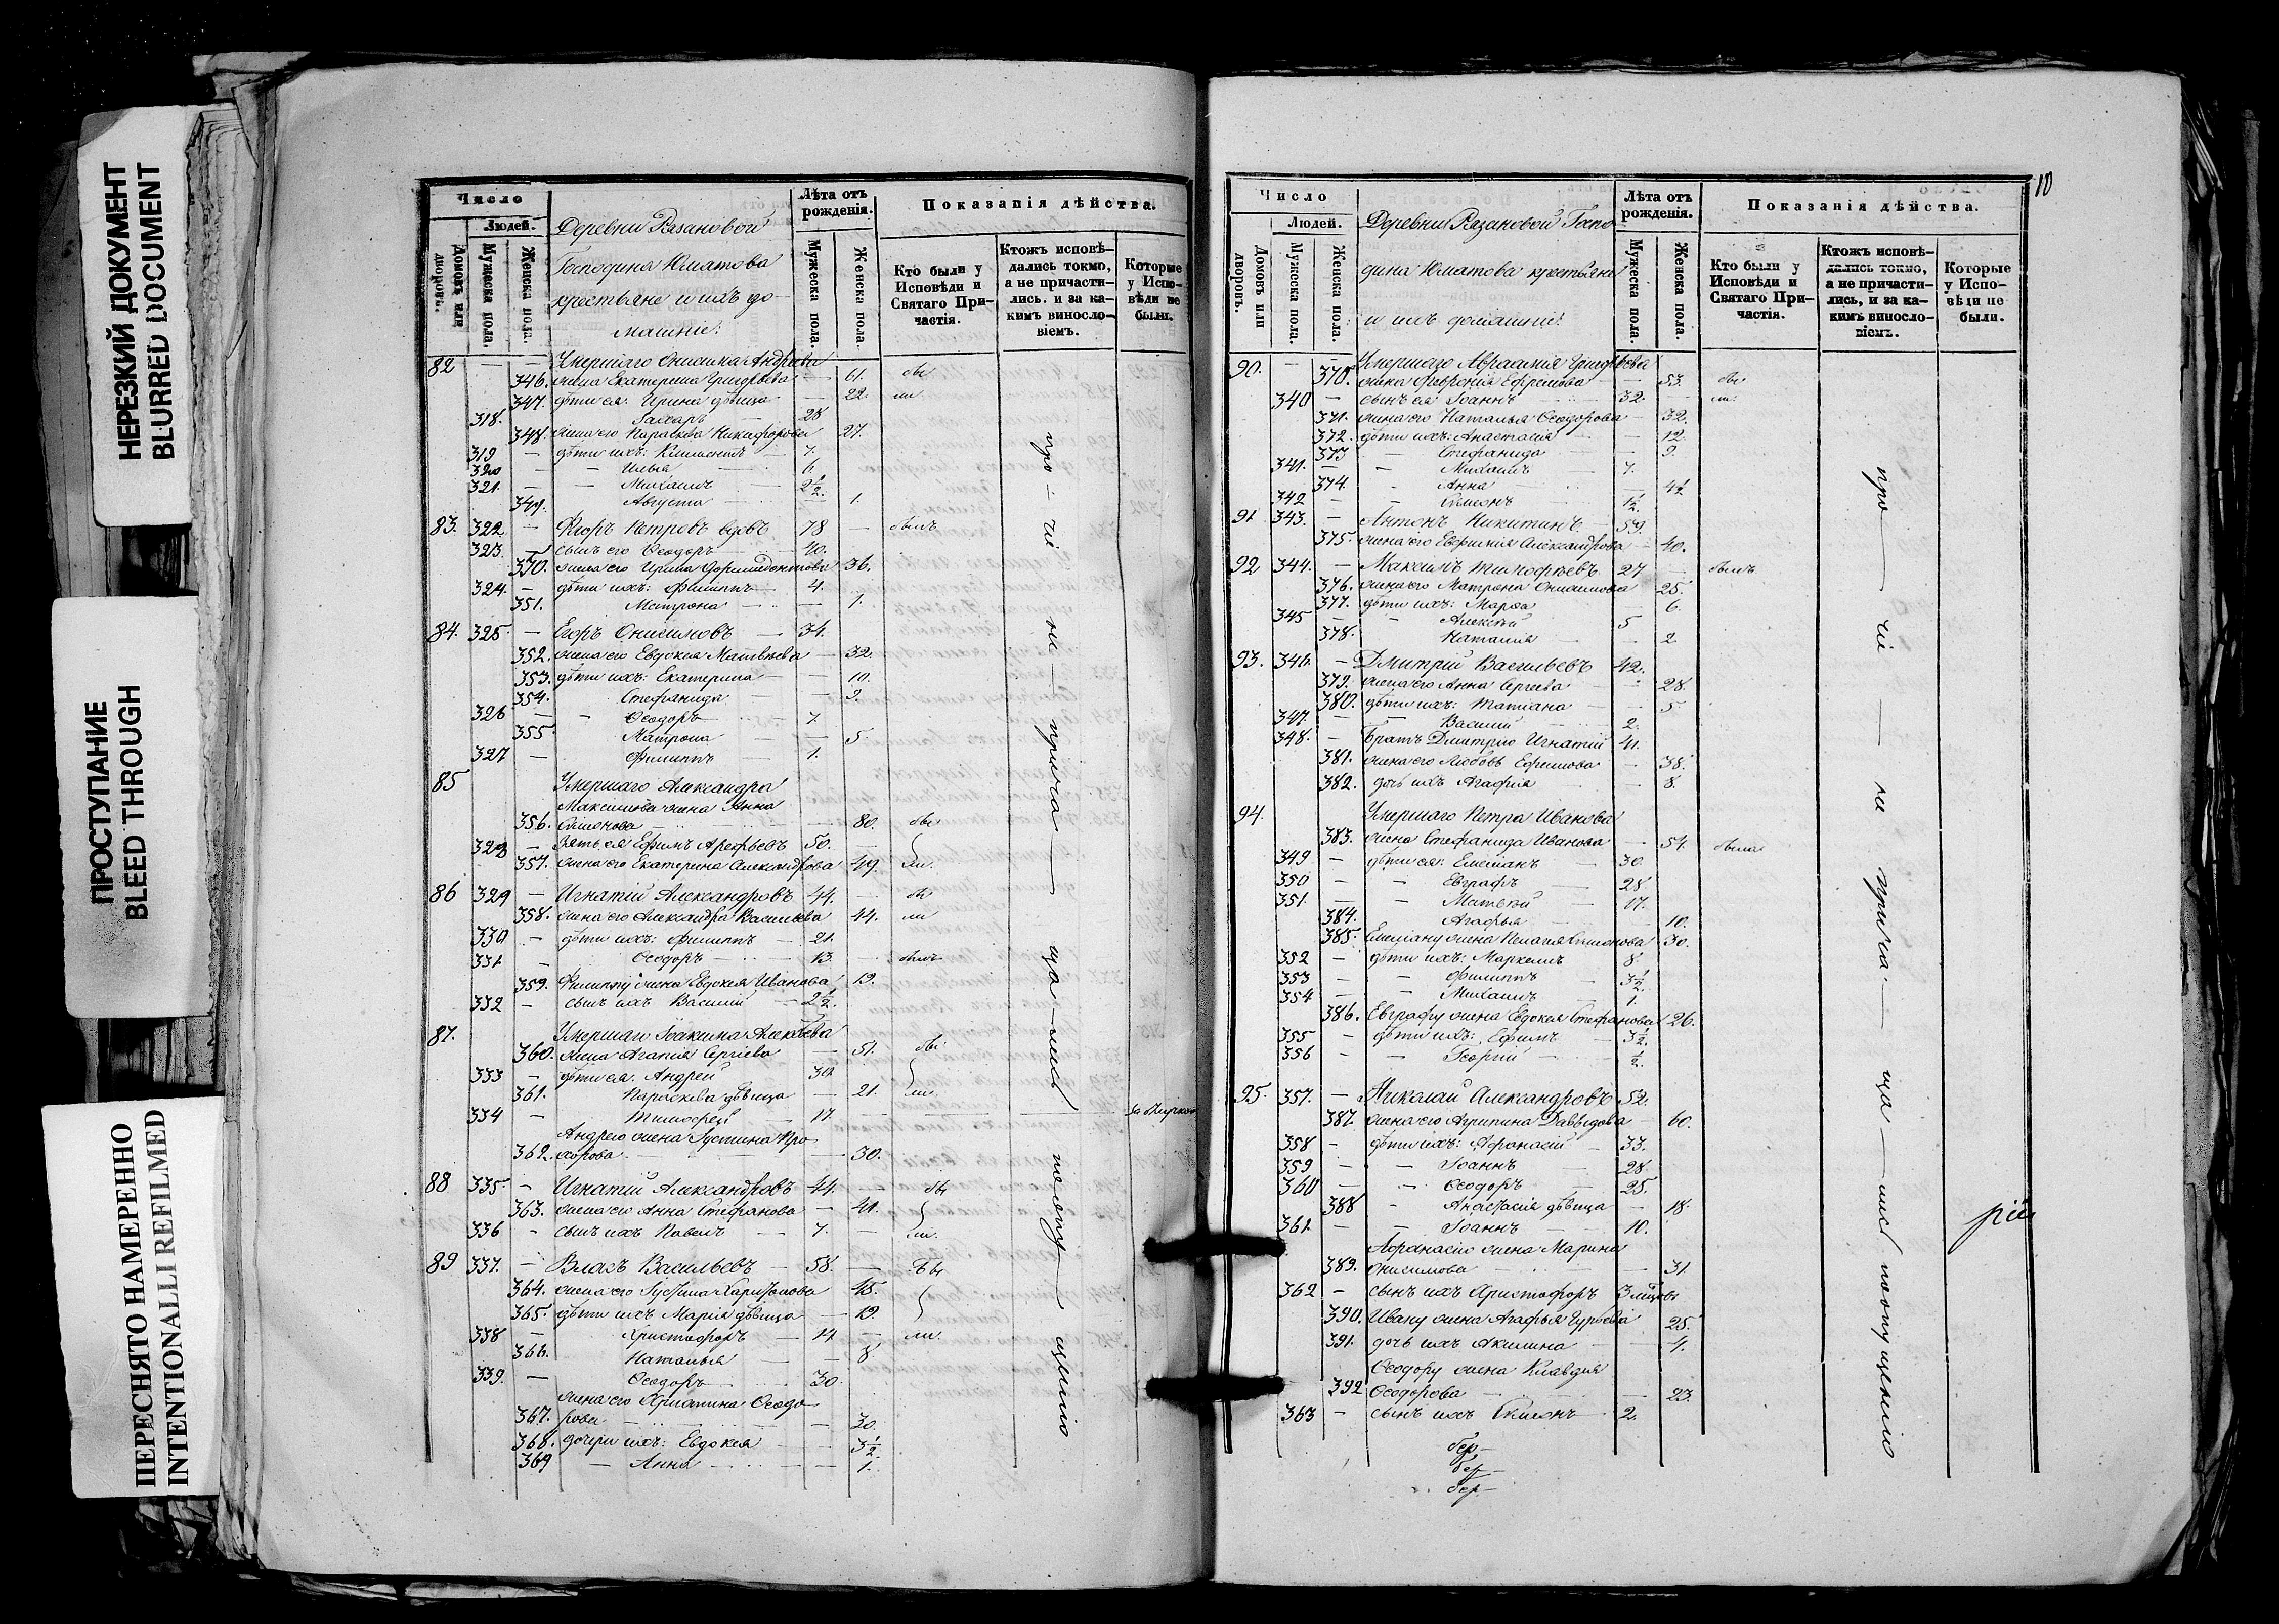 НЕРЕЗКИЙ ДОКУМЕНТ
BLURRED DOCUMENT
ПРОСТУПАНИЕ
BLEED THROUGH
ПЕРЕСНЯТО НАМЕРЕННО
INTENTIONALLI REFILMED
Число
Людей.
Домовъ или дворовъ.
Мужеска пола.
Женска пола.
Деревни Разановой
Господина Юматова
крестьяне и ихъ до-
машніе:
Лѣта отъ рожденія.
Мужеска пола.
Женска пола.
Показанія дѣйства.
Кто были у Исповѣди и Святаго При-частія.
Ктожъ исповѣ-дались токмо, а не причасти-лись. и за ка-кимъ винословіемъ.
Которые у Испо-вѣди не были.
82 — Умершаго Онисима Андреева
346. жена Екатерина Григорьева — 61. бы
347. дѣти ея: Ирина дѣвица — 22. ли
318. Захаръ — 28
348. жена его Параскева Никифорова 27.
319 — дѣти ихъ: Климентъ — 7.
320 — — Илья — 6.
321 — — Михаилъ — 2½.
349. Августа — 1.
83. 322 — Егоръ Петровъ вдовъ 78 — былъ
323. — сынъ его Ѳеодоръ — 40.
350. жена его Ирина Доримедонтова 36.
324. — дѣти ихъ: Филиппъ — 4.
351. Матрона — — 1.
84. 325. — Егоръ Онисимовъ — 34.
352. жена его Евдокея Матвѣева — 32.
353. дѣти ихъ: Екатерина — — 10.
354. Стефанида — — 9.
326 — — Ѳеодоръ — 7.
355 Матрона — — 5.
327 — Филиппъ — 1.
85 Умершаго Александра
Максимова жена Анна
356. Симонова — 80. бы
328 — Зять ея Ефимъ Арефьевъ 50. —
357. жена его Екатерина Александрова 49. ли.
86 329 — Игнатій Александровъ 44. — бы
358. жена его Александра Васильева 44. ли
330 — дѣти ихъ: Филиппъ — 21.
331 — Ѳеодоръ — 13. — былъ
359. Филиппу жена Евдокея Иванова 19.
332 — сынъ ихъ Василій — 2½.
87. Умершаго Іоакима Алексѣева
360. жена Агапія Сергіева — 51. бы
333 — дѣти ея: Андрей 30.
361. Параскева дѣвица — 21. ли.
334 — Тимофей — 17.
Андрею жена Іустина Про-
362. хорова — 30.
88 335. — Игнатій Александровъ 44. — бы
363. жена его Анна Стефанова — 41.
336 — сынъ ихъ Павелъ — 7. — ли.
89 337. — Власъ Васильевъ — 58. — Бы
364. жена его Іустина Харитонова 45.
365. дѣти ихъ Марія дѣвица — 19.
338 — Христофоръ — 14. — ли.
366. Наталья — — 8
339. — Ѳеодоръ — 30.
жена его Христина Ѳеодо-
367. рова — 30.
368. дочери ихъ: Евдокея — — 3½
369 — Анна — — 1.
про — чіе — не — прича — ща — лись по опу — щенію
10
Число
Людей.
Домовъ или дворовъ.
Мужеска пола.
Женска пола.
Деревни Разановой Госпо-
дина Юматова крестьяне
и ихъ домашніе:
Лѣта отъ рожденія.
Мужеска пола
Женска пола.
Показанія дѣйства.
Кто были у Исповѣди и Святаго При-частія.
Ктожъ исповѣ-дались токмо, а не причасти-лись, и за ка-кимъ винословіемъ.
Которые у Испо-вѣди не были.
90. — — Умершаго Аврамія Григорьева
370. жена Февронія Ефремова — — 53. бы
340 — сынъ ея Іоаннъ 32. — ли.
371. жена его Наталья Ѳеодорова — 32.
372. дѣти ихъ: Анастасія — — 12.
373 — Стефанида — — 9.
341. — — Михаилъ — 7.
374. — Анна — 4½
342 — — Симеонъ — 1½.
91 343. — Антонъ Никитинъ — 59.
375. жена его Евфимія Александрова — 40.
92 344. — Максимъ Тимофѣевъ 27 — былъ
376. жена его Матрона Онисимова 25.
377. дѣти ихъ: Марѳа 6.
345 — — Алексѣй 5
378. Наталія — — 2
93. 346. — Дмитрій Васильевъ 42.
379. жена его Анна Сергеева — — 28.
380. дѣти ихъ: Татіана — — 5
347. — — Василій — 2.
348. — Братъ Дмитрію Игнатій 41.
381. жена его Любовь Ефимова — 38.
382. дочь ихъ Агафія — 8.
94. Умершаго Петра Иванова
383. жена Стефанида Иванова — 54. была
349 — дѣти ея: Емелианъ — 30.
350 — — Евграфъ — 28.
351. — — Матвѣй — 17.
384. Агафья — 10.
385. Емеліану жена Пелагея Симонова 30.
352 — дѣти ихъ: Маркелъ 8
353 — — Филиппъ — 3½.
354 — — Михаилъ — 1.
386. Евграфу жена Евдокея Стефанова 26.
355 — дѣти ихъ: Ефимъ — 3½.
356 — — Георгій — ½.
95. 357. — Николай Александровъ 52.
387. жена его Агрипина Давыдова — 60.
358 — дѣти ихъ: Афанасій — 33.
359 — — Іоаннъ — 28.
360 — — Ѳеодоръ — 25.
388 — Анастасія дѣвица — 18.
361. — — Іоаннъ — 10.
Афанасію жена Марина
389. Онисимова — — 31.
362 — сынъ ихъ Христофоръ 3 мѣцевъ
390. Ивану жена Агафья Гурьева 25.
391. дочь ихъ Акилина — — 4.
Ѳеодору жена Клавдия
392 Ѳеодорова — — 23.
363 — сынъ ихъ Симеонъ — 2.
про — чіе — не прича — ща — лись по опущенію